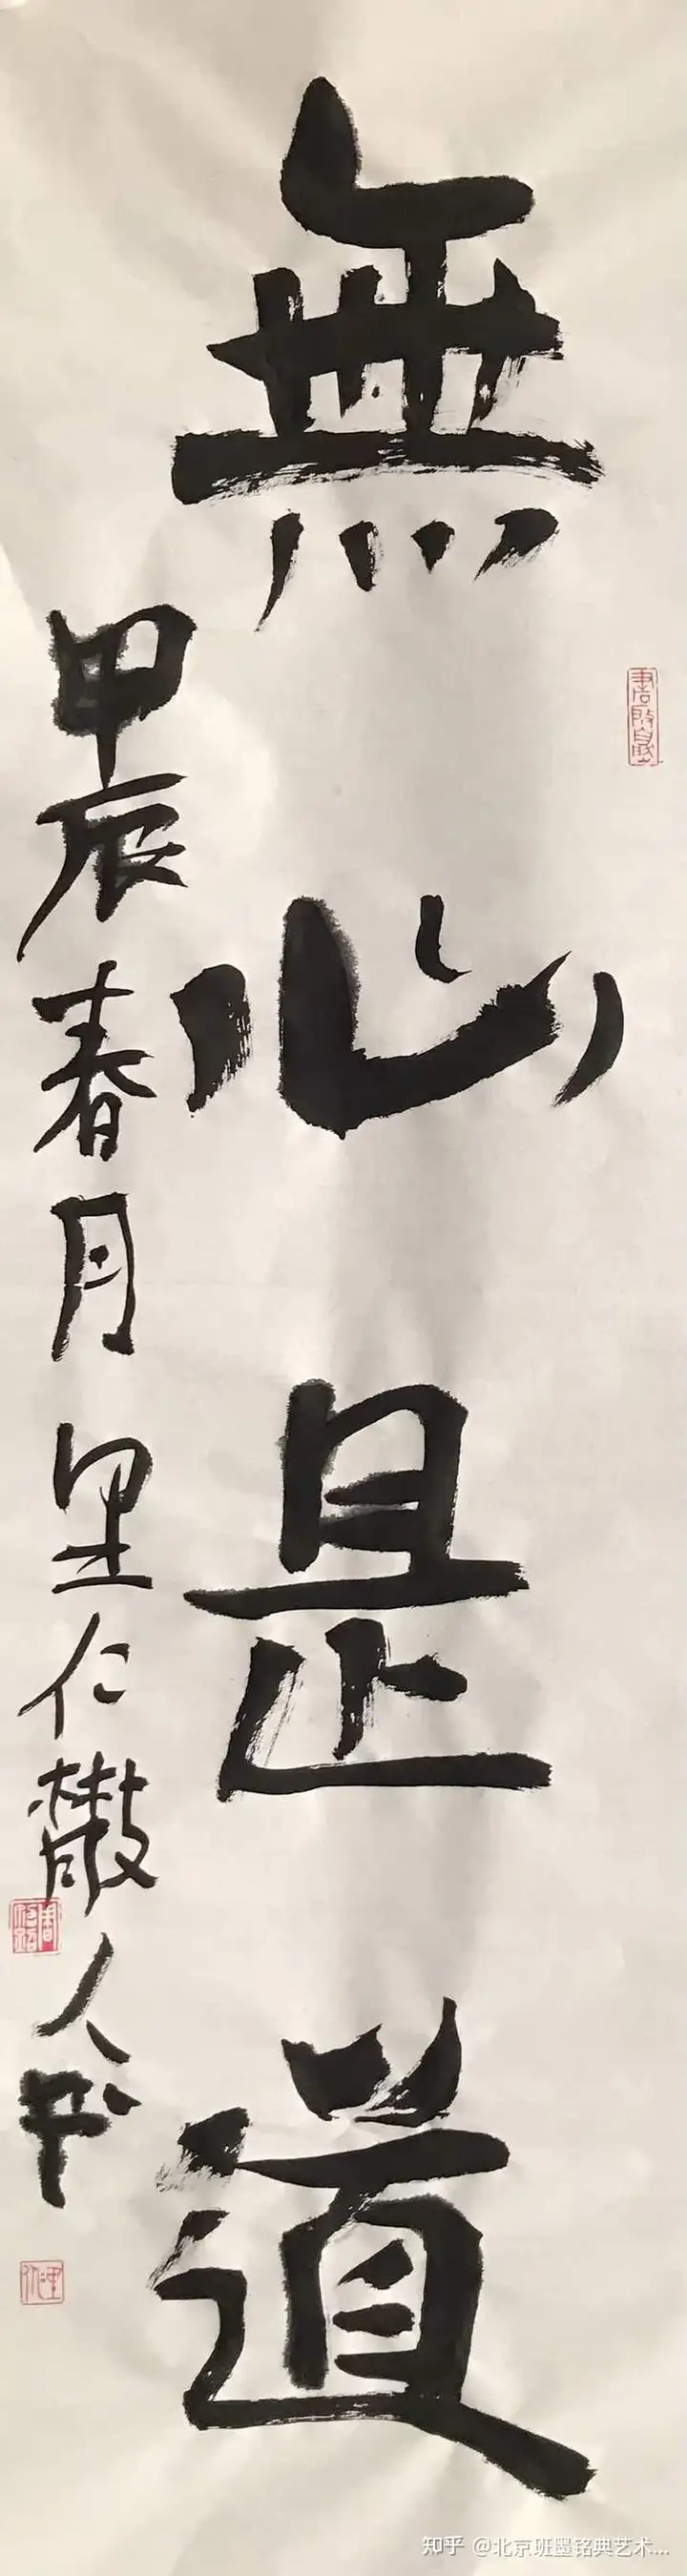 無心是道
甲辰春月里仁散人书
知乎 @北京班墨铭典艺术...